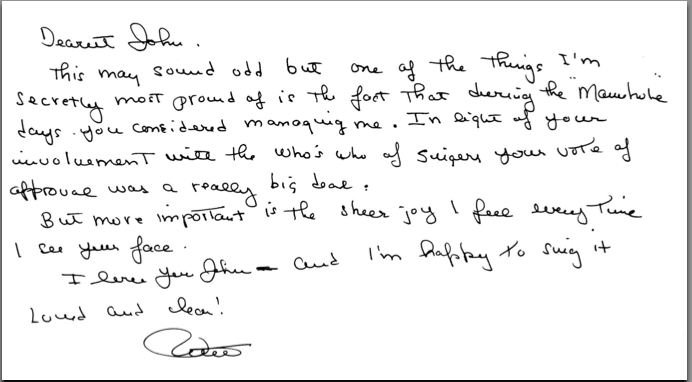 Dearest John.
This may sound odd but one of the things I'm
secretly most proud of is the fact that during the "Manhole"
days you considered managing me. In light of your
involvement with the who's who of singers your vote of
approval was a really big deal.
But more important is the sheer joy I feel every time
I see your face.
I love you John - and I'm happy to sing it
Loud and clear!